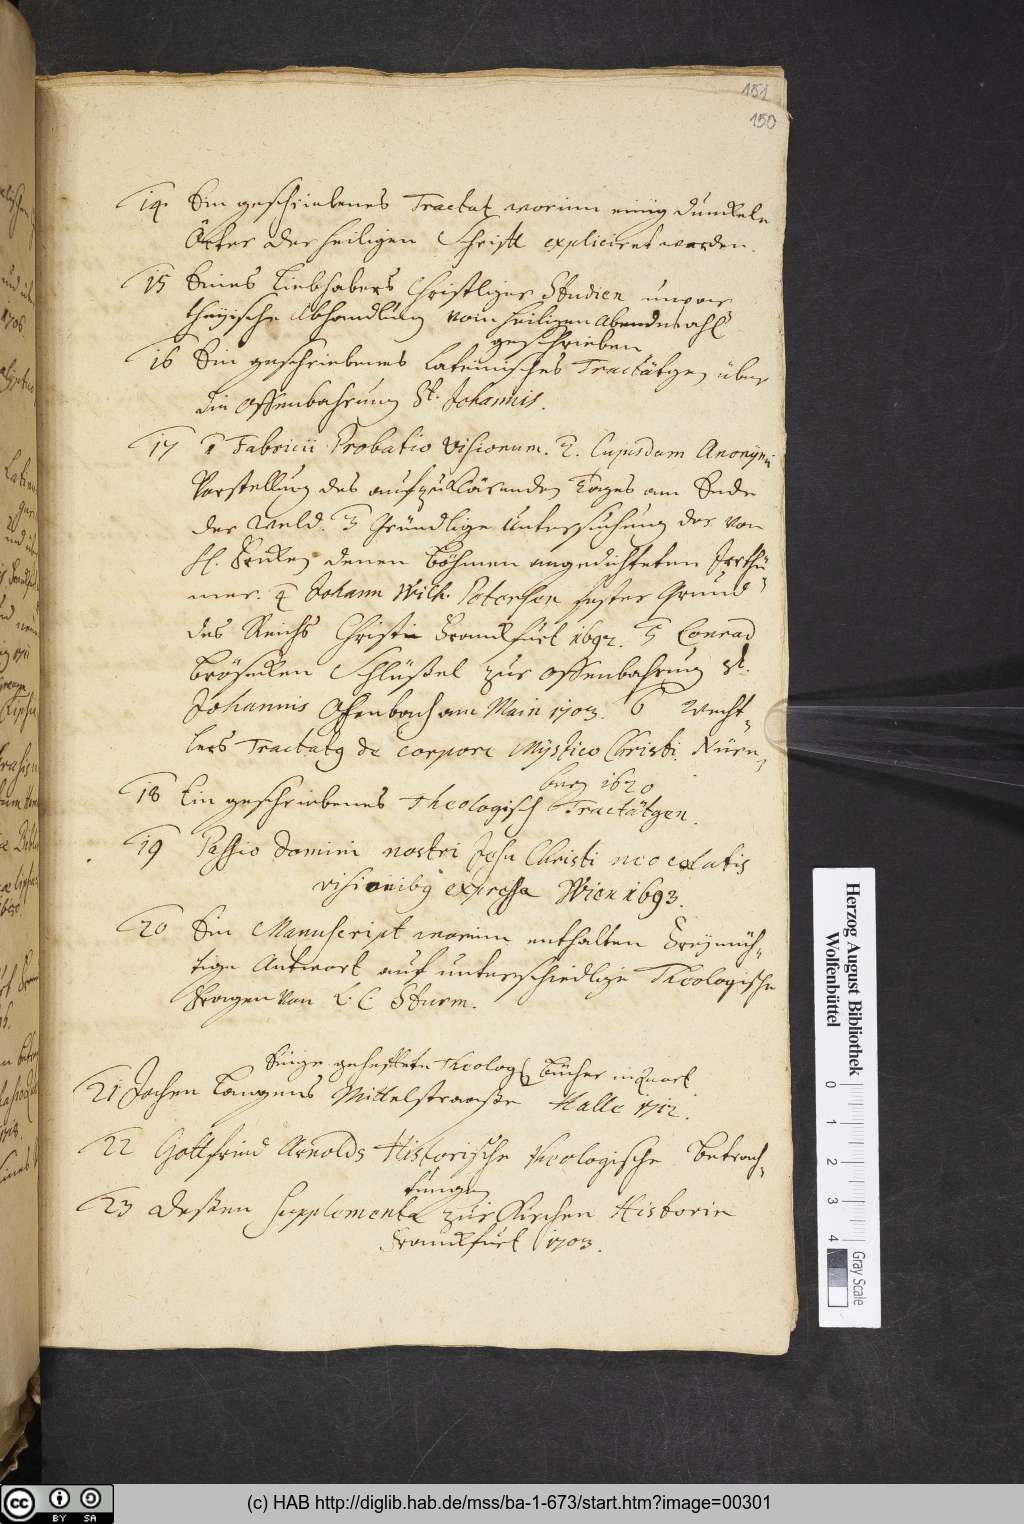 151
150
14. Ein geschriebenes Tractat worinn einig dunckele
Örter der heiligen Schrifft expliciret werden.
15 Eines Liebhabers Christliger Studien unpar
theyische Abhandlung vom heiligen Abendmahl
geschrieben
16 Ein geschriebenes Lateinisches Tractätgen über
die Offenbahrung St. Johannis.
17 1 Fabricii Probatio Visionum. 2. Cujusdam Anonymi
Vorstellung des aufzuklärenden Tages am Ende
der Weld. 3 Gründlige Untersuchung der von
denen Böhmen angedichteten Irrthü-
mer. 4 Johann Wilh. Petersen fester Grund
des Reichs Christi Franckfurt 1692. 5 Conrad
Brösecken Schlüßel zur Offenbahrung St.
Johannis Offenbach am Main 1703. 6 Wecht-
lers Tractatg de corpore Mystico Christi. Nürn-
berg 1620
18 Ein geschriebenes Theologisch Tractätgen.
19 Passio Domini nostri Jesu Christi neocelatis
visionibg expressa Wien 1693.
20 Ein Manuscript worinn enthalten Freymüh-
tige Antwort auf unterschiedlige Theologische
Fragen von L. C. Sturm.
Einige geheftete Theolog. Bücher in Quart
21 Jochen Langens Mittelstraaße Halle 1712.
22 Gottfried Arnolds Historische theologische Betrach-
tungen
23 Deßen Supplementa zur Kirchen Historie
Franckfurt 1703.
Herzog August Bibliothek
Wolfenbüttel
0 1 2 3 4
Gray Scale
CC BY SA
(c) HAB http://diglib.hab.de/mss/ba-1-673/start.htm?image=00301